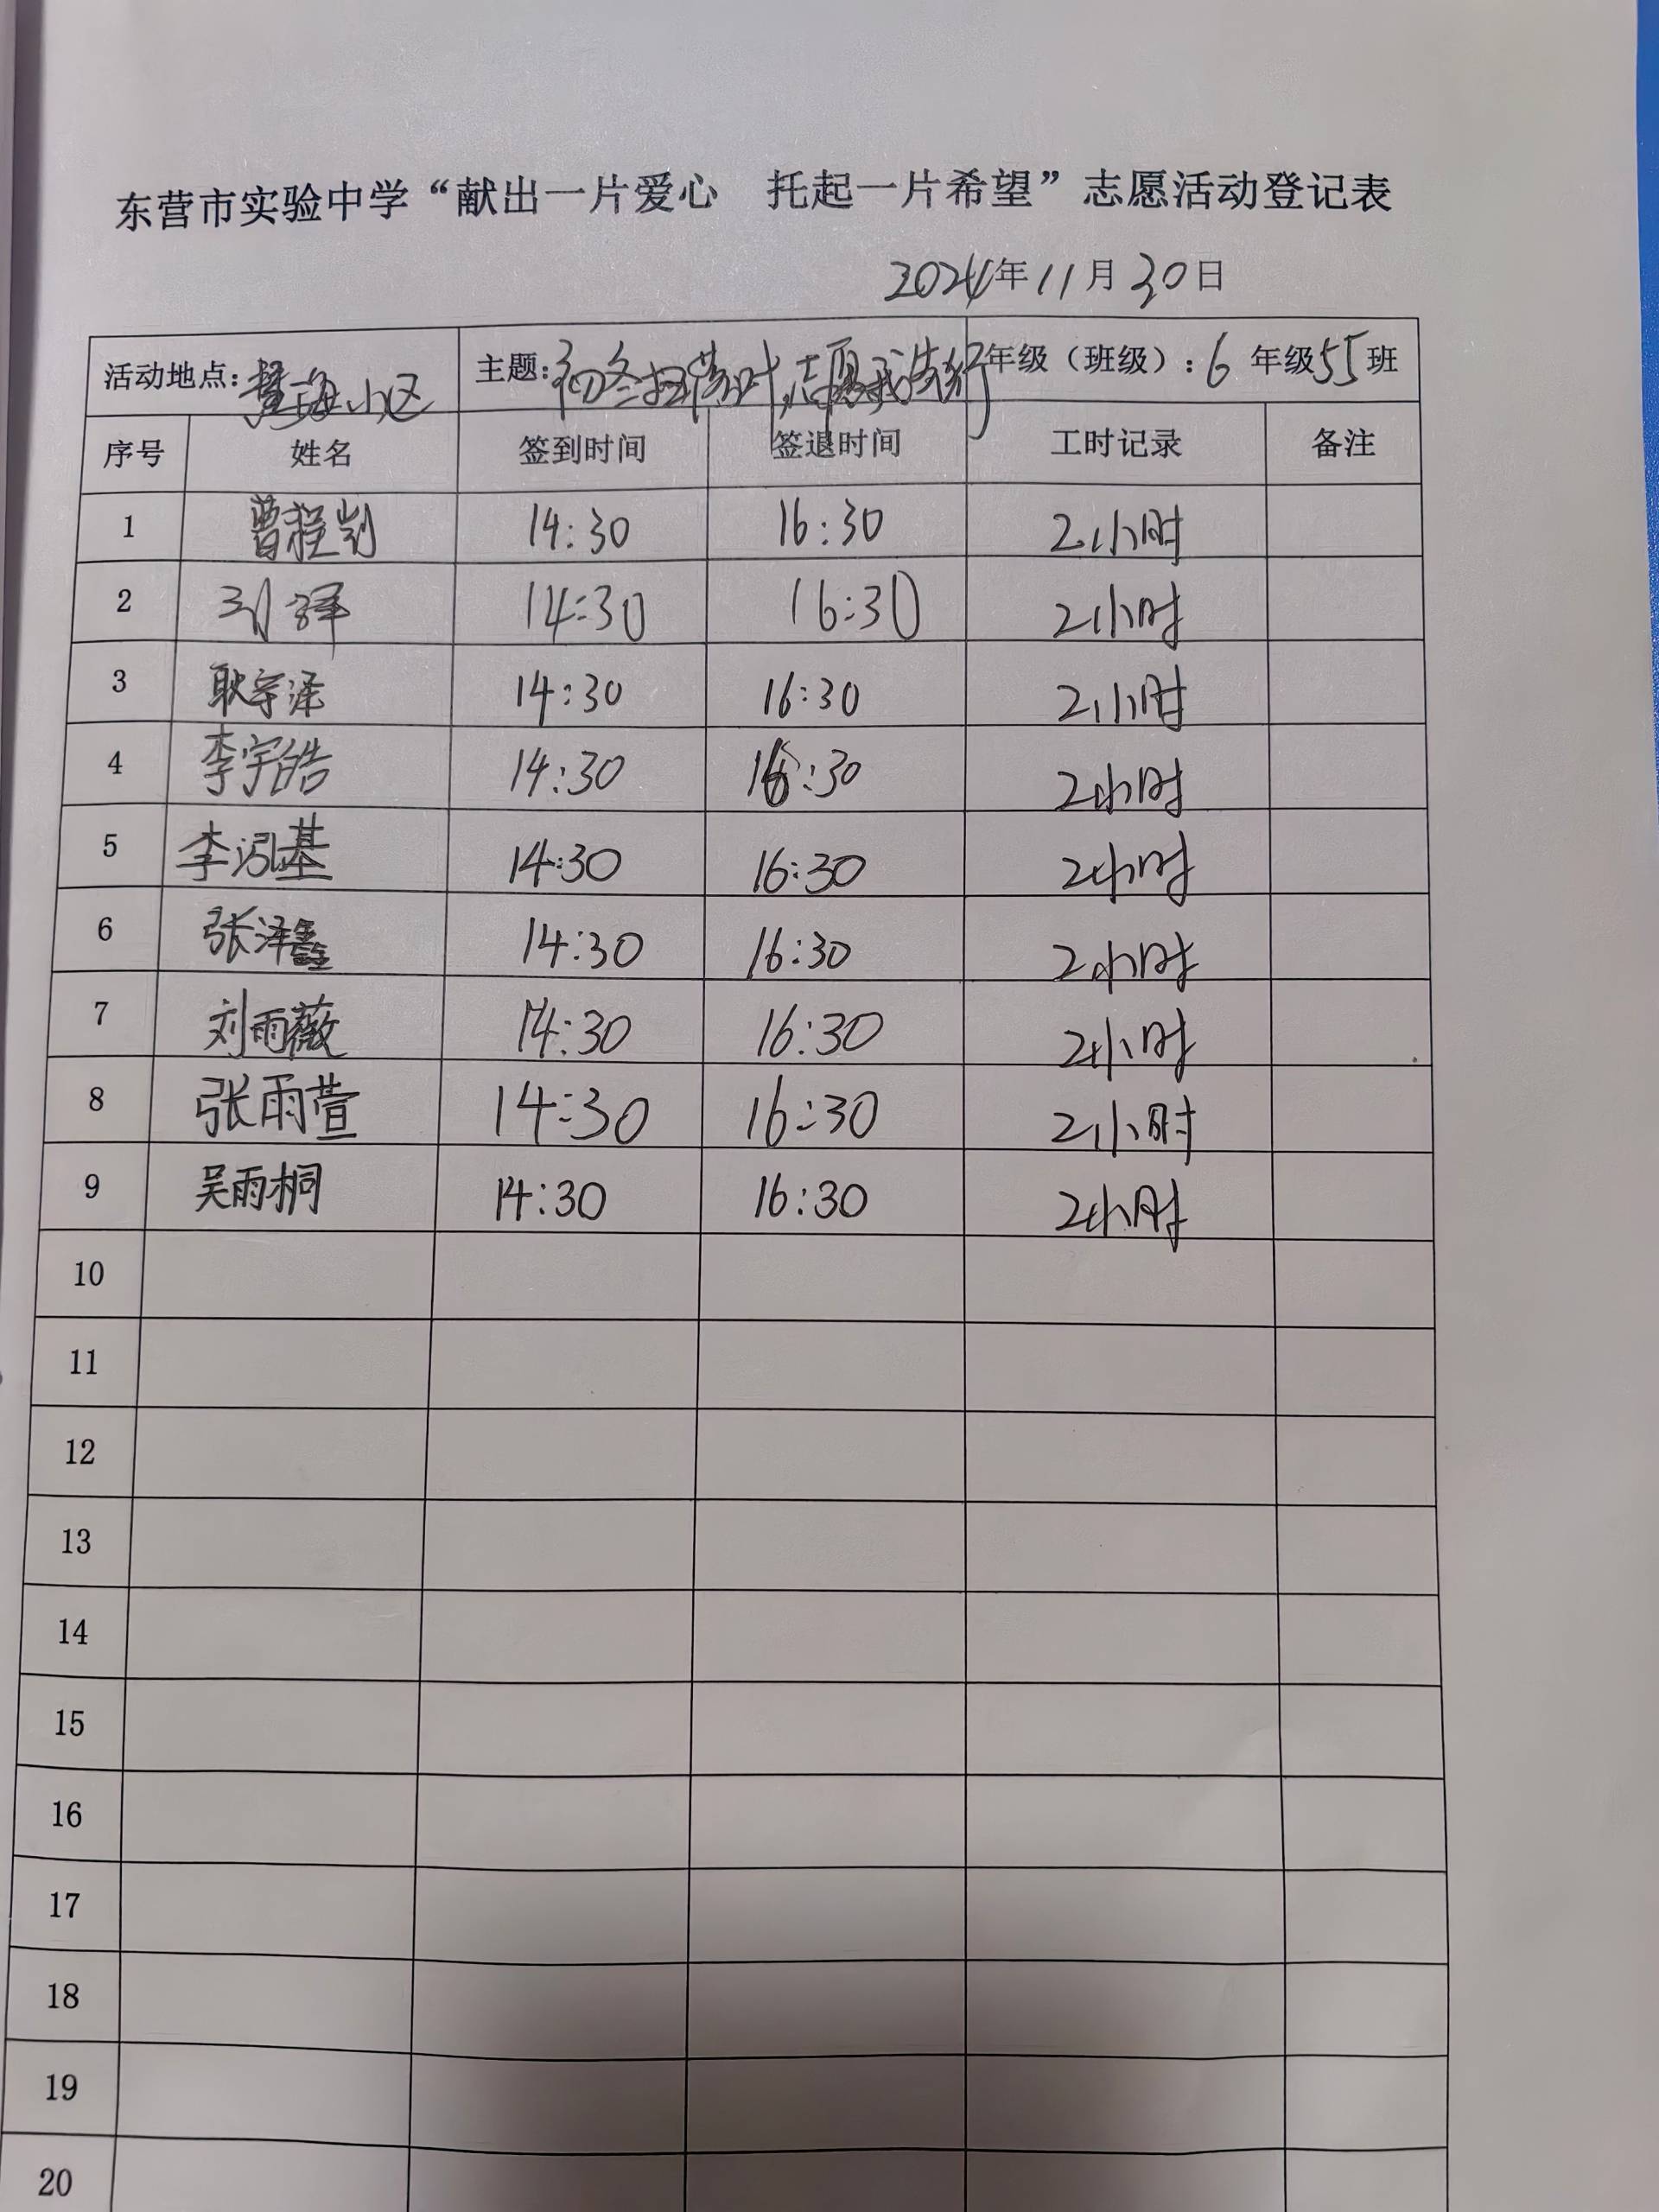 东营市实验中学“献出一片爱心 托起一片希望”志愿活动登记表
2024年11月30日
活动地点: 小区 主题: 初冬扫落叶,志愿我先行 年级（班级）: 6 年级 55 班
序号 姓名 签到时间 签退时间 工时记录 备注
1 曹程 14:30 16:30 2小时
2 刘 14:30 16:30 2小时
3 耿宇泽 14:30 16:30 2小时
4 李宇皓 14:30 16:30 2小时
5 李泓基 14:30 16:30 2小时
6 张泽鑫 14:30 16:30 2小时
7 刘雨薇 14:30 16:30 2小时
8 张雨萱 14:30 16:30 2小时
9 吴雨桐 14:30 16:30 2小时
10
11
12
13
14
15
16
17
18
19
20